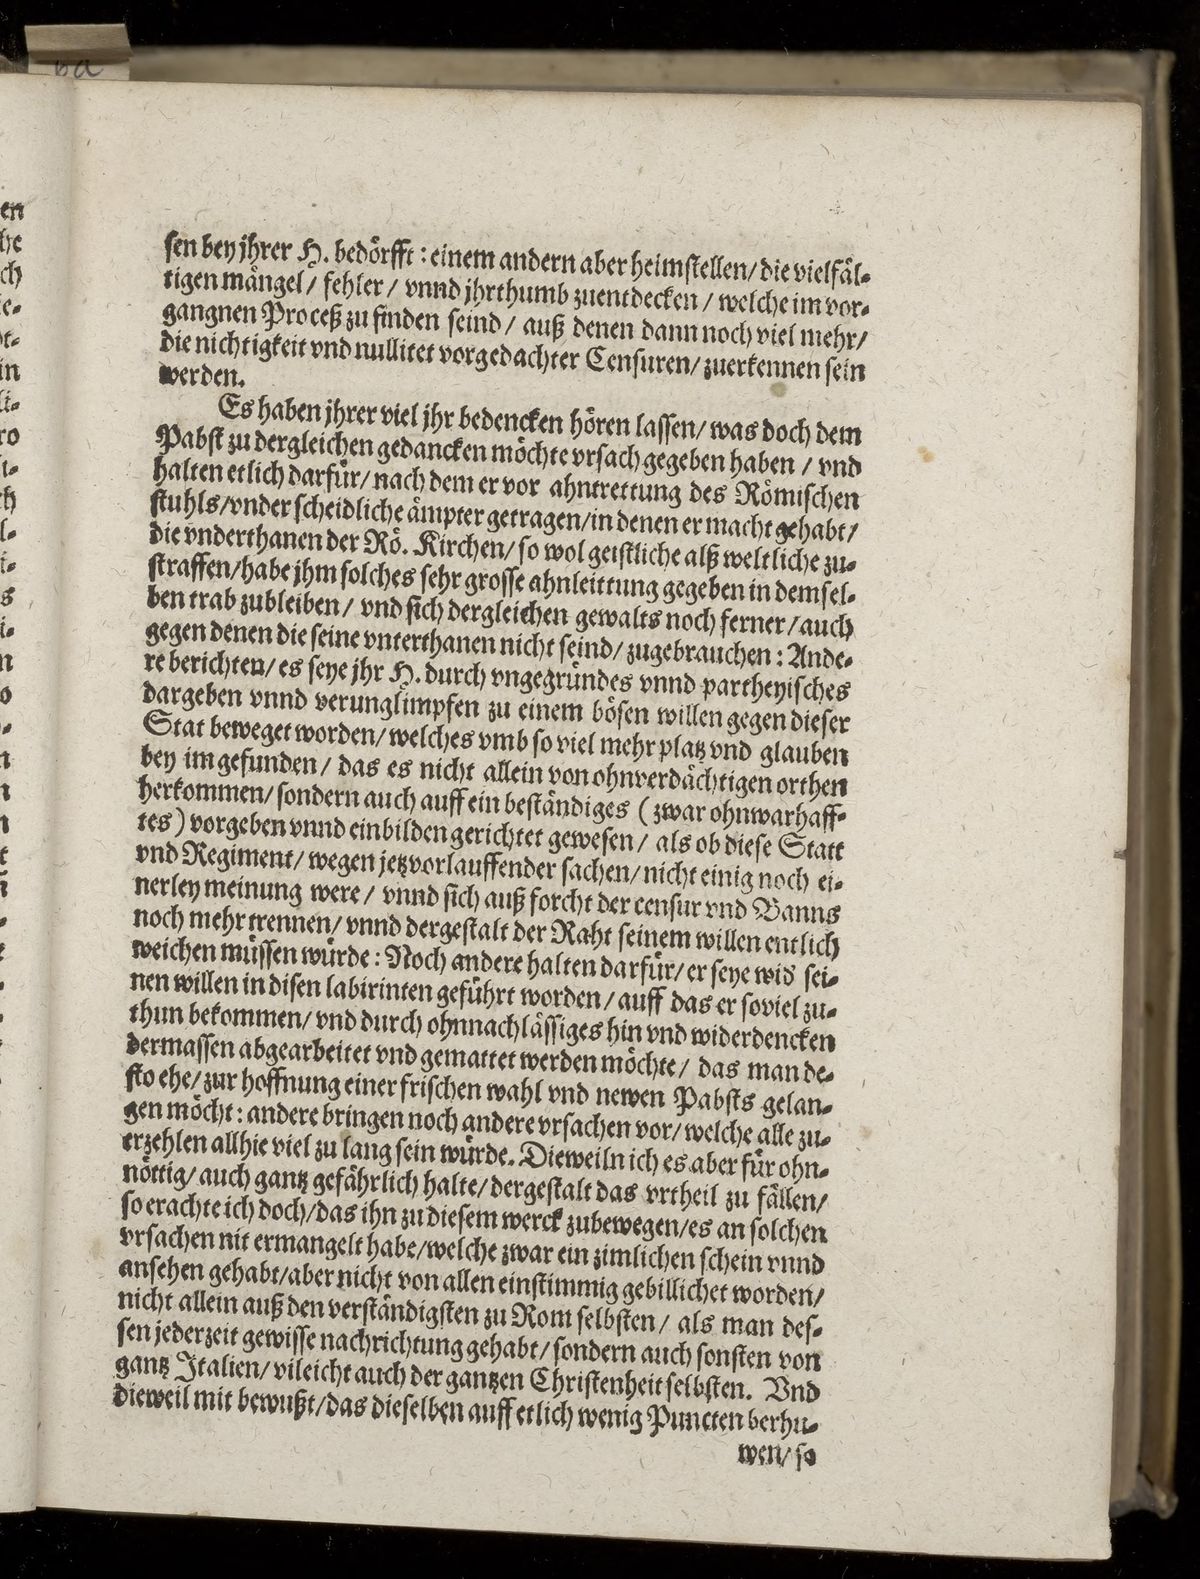 sen bey jhrer H. bedörfft : einem andern aber heimstellen/ die vielfäl-
tigen mängel/ fehler/ vnnd jhrthumb zuentdecken/ welche im vor-
gangnen Proceß zu finden seind/ auß denen dann noch viel mehr/
die nichtigkeit vnd nullitet vorgedachter Censuren/ zuerkennen sein
werden.
Es haben jhrer viel jhr bedencken hören lassen/ was doch dem
Pabst zu dergleichen gedancken möchte vrsach gegeben haben / vnd
halten etlich darfür/ nach dem er vor ahntrettung des Römischen
stuhls/ vnderscheidliche ämpter getragen/ in denen er macht gehabt/
die vnderthanen der Rö. Kirchen/ so wol geistliche alß weltliche zu-
straffen/ habe jhm solches sehr grosse ahnleittung gegeben in demsel-
ben trab zubleiben/ vnd sich dergleichen gewalts noch ferner/ auch
gegen denen die seine vnterthanen nicht seind/ zugebrauchen : Ande-
re berichten/ es seye jhr H. durch vngegründes vnnd partheyisches
dargeben vnnd verunglimpfen zu einem bösen willen gegen dieser
Stat beweget worden/ welches vmb so viel mehr platz vnd glauben
bey im gefunden/ das es nicht allein von ohnverdächtigen orthen
herkommen/ sondern auch auff ein beständiges ( zwar ohnwarhaff-
tes ) vorgeben vnnd einbilden gerichtet gewesen/ als ob diese Statt
vnd Regiment/ wegen jetzvorlauffender sachen/ nicht einig noch ei-
nerley meinung were/ vnnd sich auß forcht der censur vnd Banns
noch mehr trennen/ vnnd dergestalt der Raht seinem willen entlich
weichen müssen würde : Noch andere halten darfür/ er seye wid' sei-
nen willen in disen labirinten geführt worden/ auff das er soviel zu-
thun bekommen/ vnd durch ohnnachlässiges hin vnd widerdencken
dermassen abgearbeitet vnd gemattet werden möchte/ das man de-
sto ehe/ zur hoffnung einer frischen wahl vnd newen Pabsts gelan-
gen möcht : andere bringen noch andere vrsachen vor/ welche alle zu-
erzehlen allhie viel zu lang sein würde. Dieweiln ich es aber für ohn-
nöttig/ auch gantz gefährlich halte/ dergestalt das vrtheil zu fällen/
so erachte ich doch/ das ihn zu diesem werck zubewegen/ es an solchen
vrsachen nit ermangelt habe/ welche zwar ein zimlichen schein vnnd
ansehen gehabt/ aber nicht von allen einstimmig gebillichet worden/
nicht allein auß den verständigsten zu Rom selbsten/ als man des-
sen jederzeit gewisse nachrichtung gehabt/ sondern auch sonsten von
gantz Italien/ vileicht auch der gantzen Christenheit selbsten. Vnd
dieweil mit bewußt/ das dieselben auff etlich wenig Puncten berhu-
wen/ so